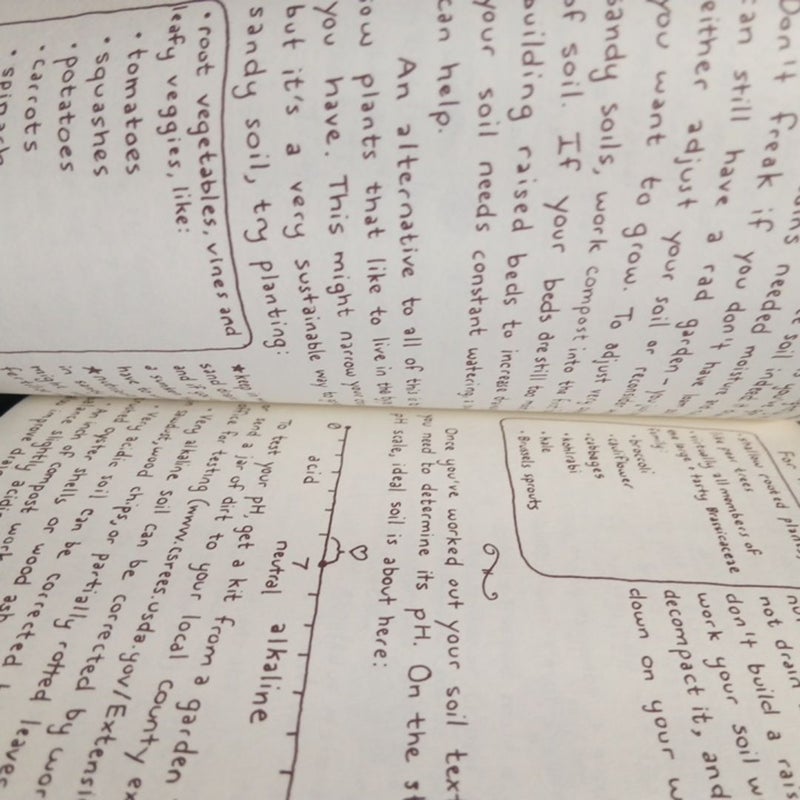 Don't freak if you don't have
can still have a rad garden - you
either adjust your soil or reconsider
you want to grow. To adjust very
sandy soils, work compost into the
of soil. If your beds are still too
building raised beds to increase
your soil needs constant watering,
can help.
An alternative to all of this
plants that like to live in the
you have. This might narrow your
but it's a very sustainable way
sandy soil, try planting:
• root vegetables, vines and
leafy veggies, like:
• tomatoes
• squashes
• potatoes
• carrots
• spinach
For
shallow rooted plants,
like pear trees
virtually all members of
the large & tasty Brassicaceae
family:
• broccoli
• cauliflower
• cabbages
• kohlrabi
• kale
• Brussels sprouts
not drain
don't build a rais
work your soil w
decompact it, and
down on your w
Once you've worked out your soil text
you need to determine its pH. On the st
pH scale, ideal soil is about here:
0 7
acid neutral alkaline
To test your pH, get a kit from a garden
send a jar of dirt to your local county ex
office for testing (www.csrees.usda.gov/Extensi
• Very alkaline soil can be corrected by wor
sawdust, wood chips, or partially rotted leaves
• Very acidic soil can be corrected
oyster shells or wood ash
An inch of compost work
slightly acidic
improve